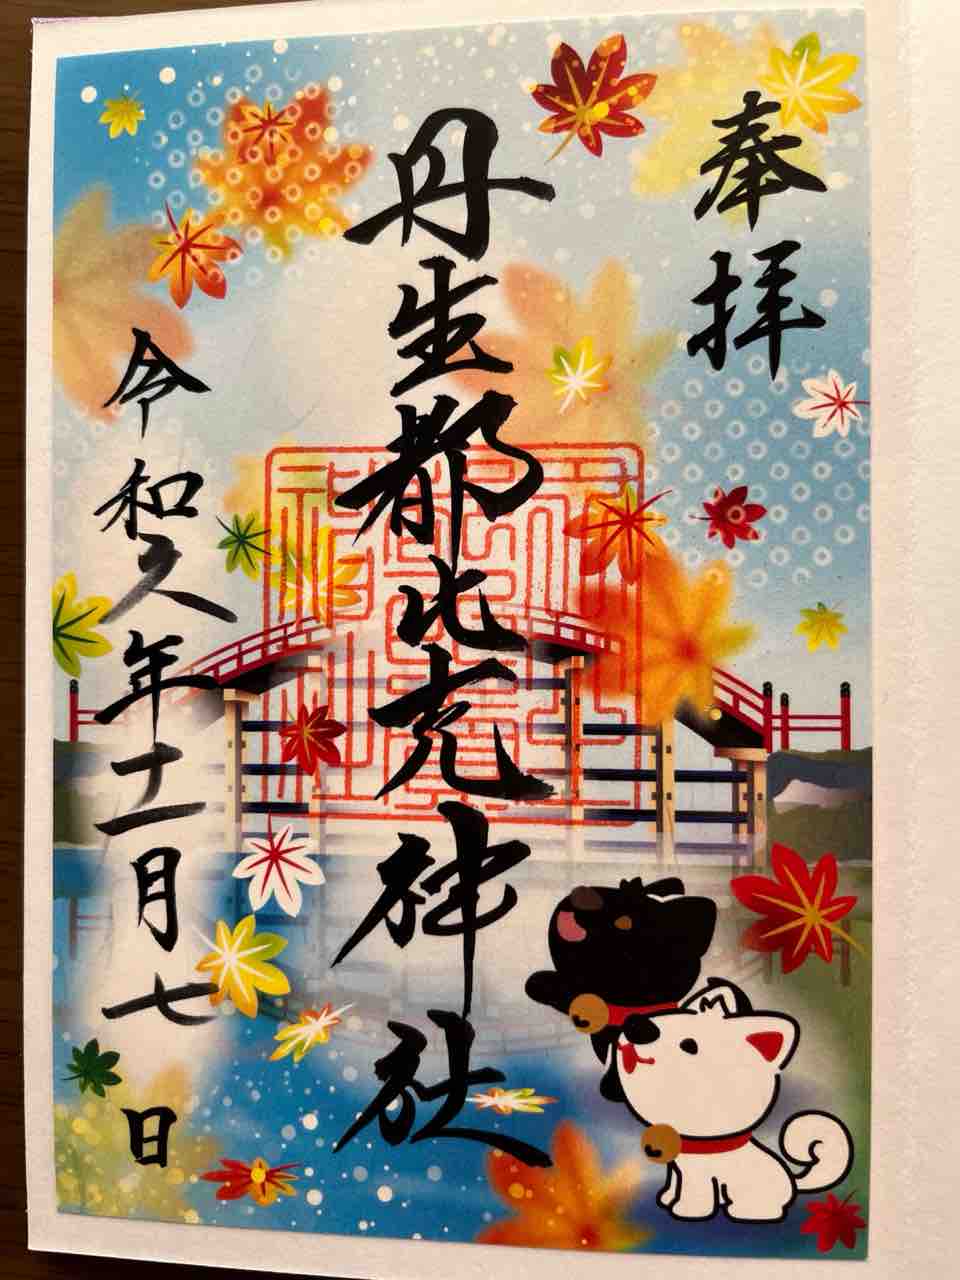 奉拝
丹生都比売神社
令和六年十一月七日